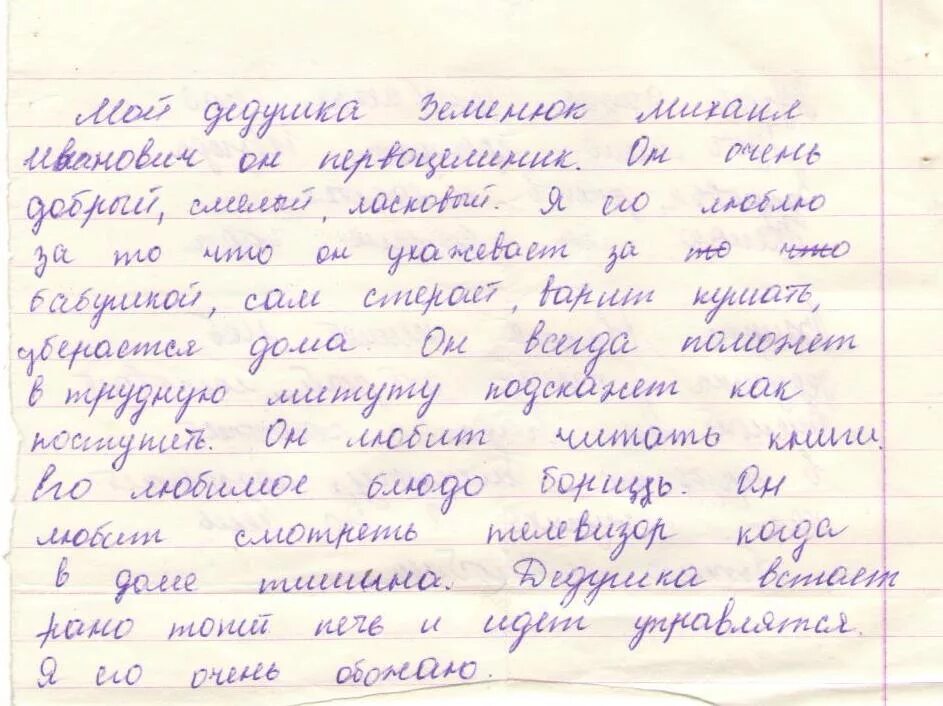 Мой дедушка Земенюк Михаил
Иванович он первоцелиник. Он очень
добрый, смелый, ласковый. Я его люблю
за то что он ухажевает за то что
бабушкой, сам стерает, варит кушать,
уберается дома. Он всегда поможет
в трудную минуту подскажет как
поступить. Он любит читать книги.
Его любимое блюдо борищь. Он
любит смотреть телевизор когда
в доме тишына. Дедушка встает
рано топит печь и идет управлятся.
Я его очень обожаю.